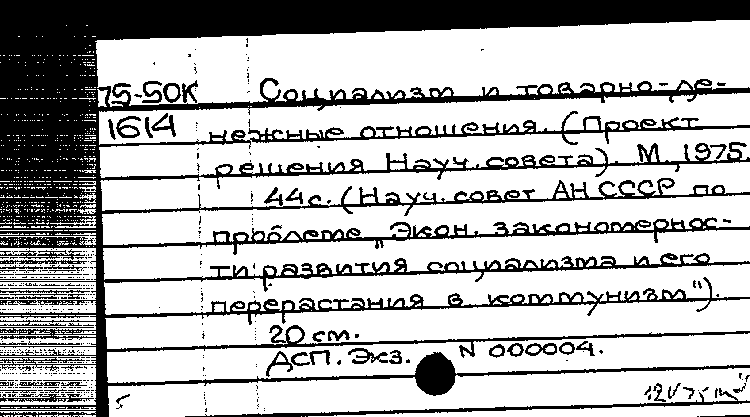 75-50К Социализм и товарно-де-
1614 нежные отношения. (Проект
решения Науч. совета). М., 1975.
44с. (Науч. совет АН СССР по
проблеме „Экон. закономернос-
ти развития социализма и его
перерастания в коммунизм").
20 см.
ДСП. Экз. N 000004.
5